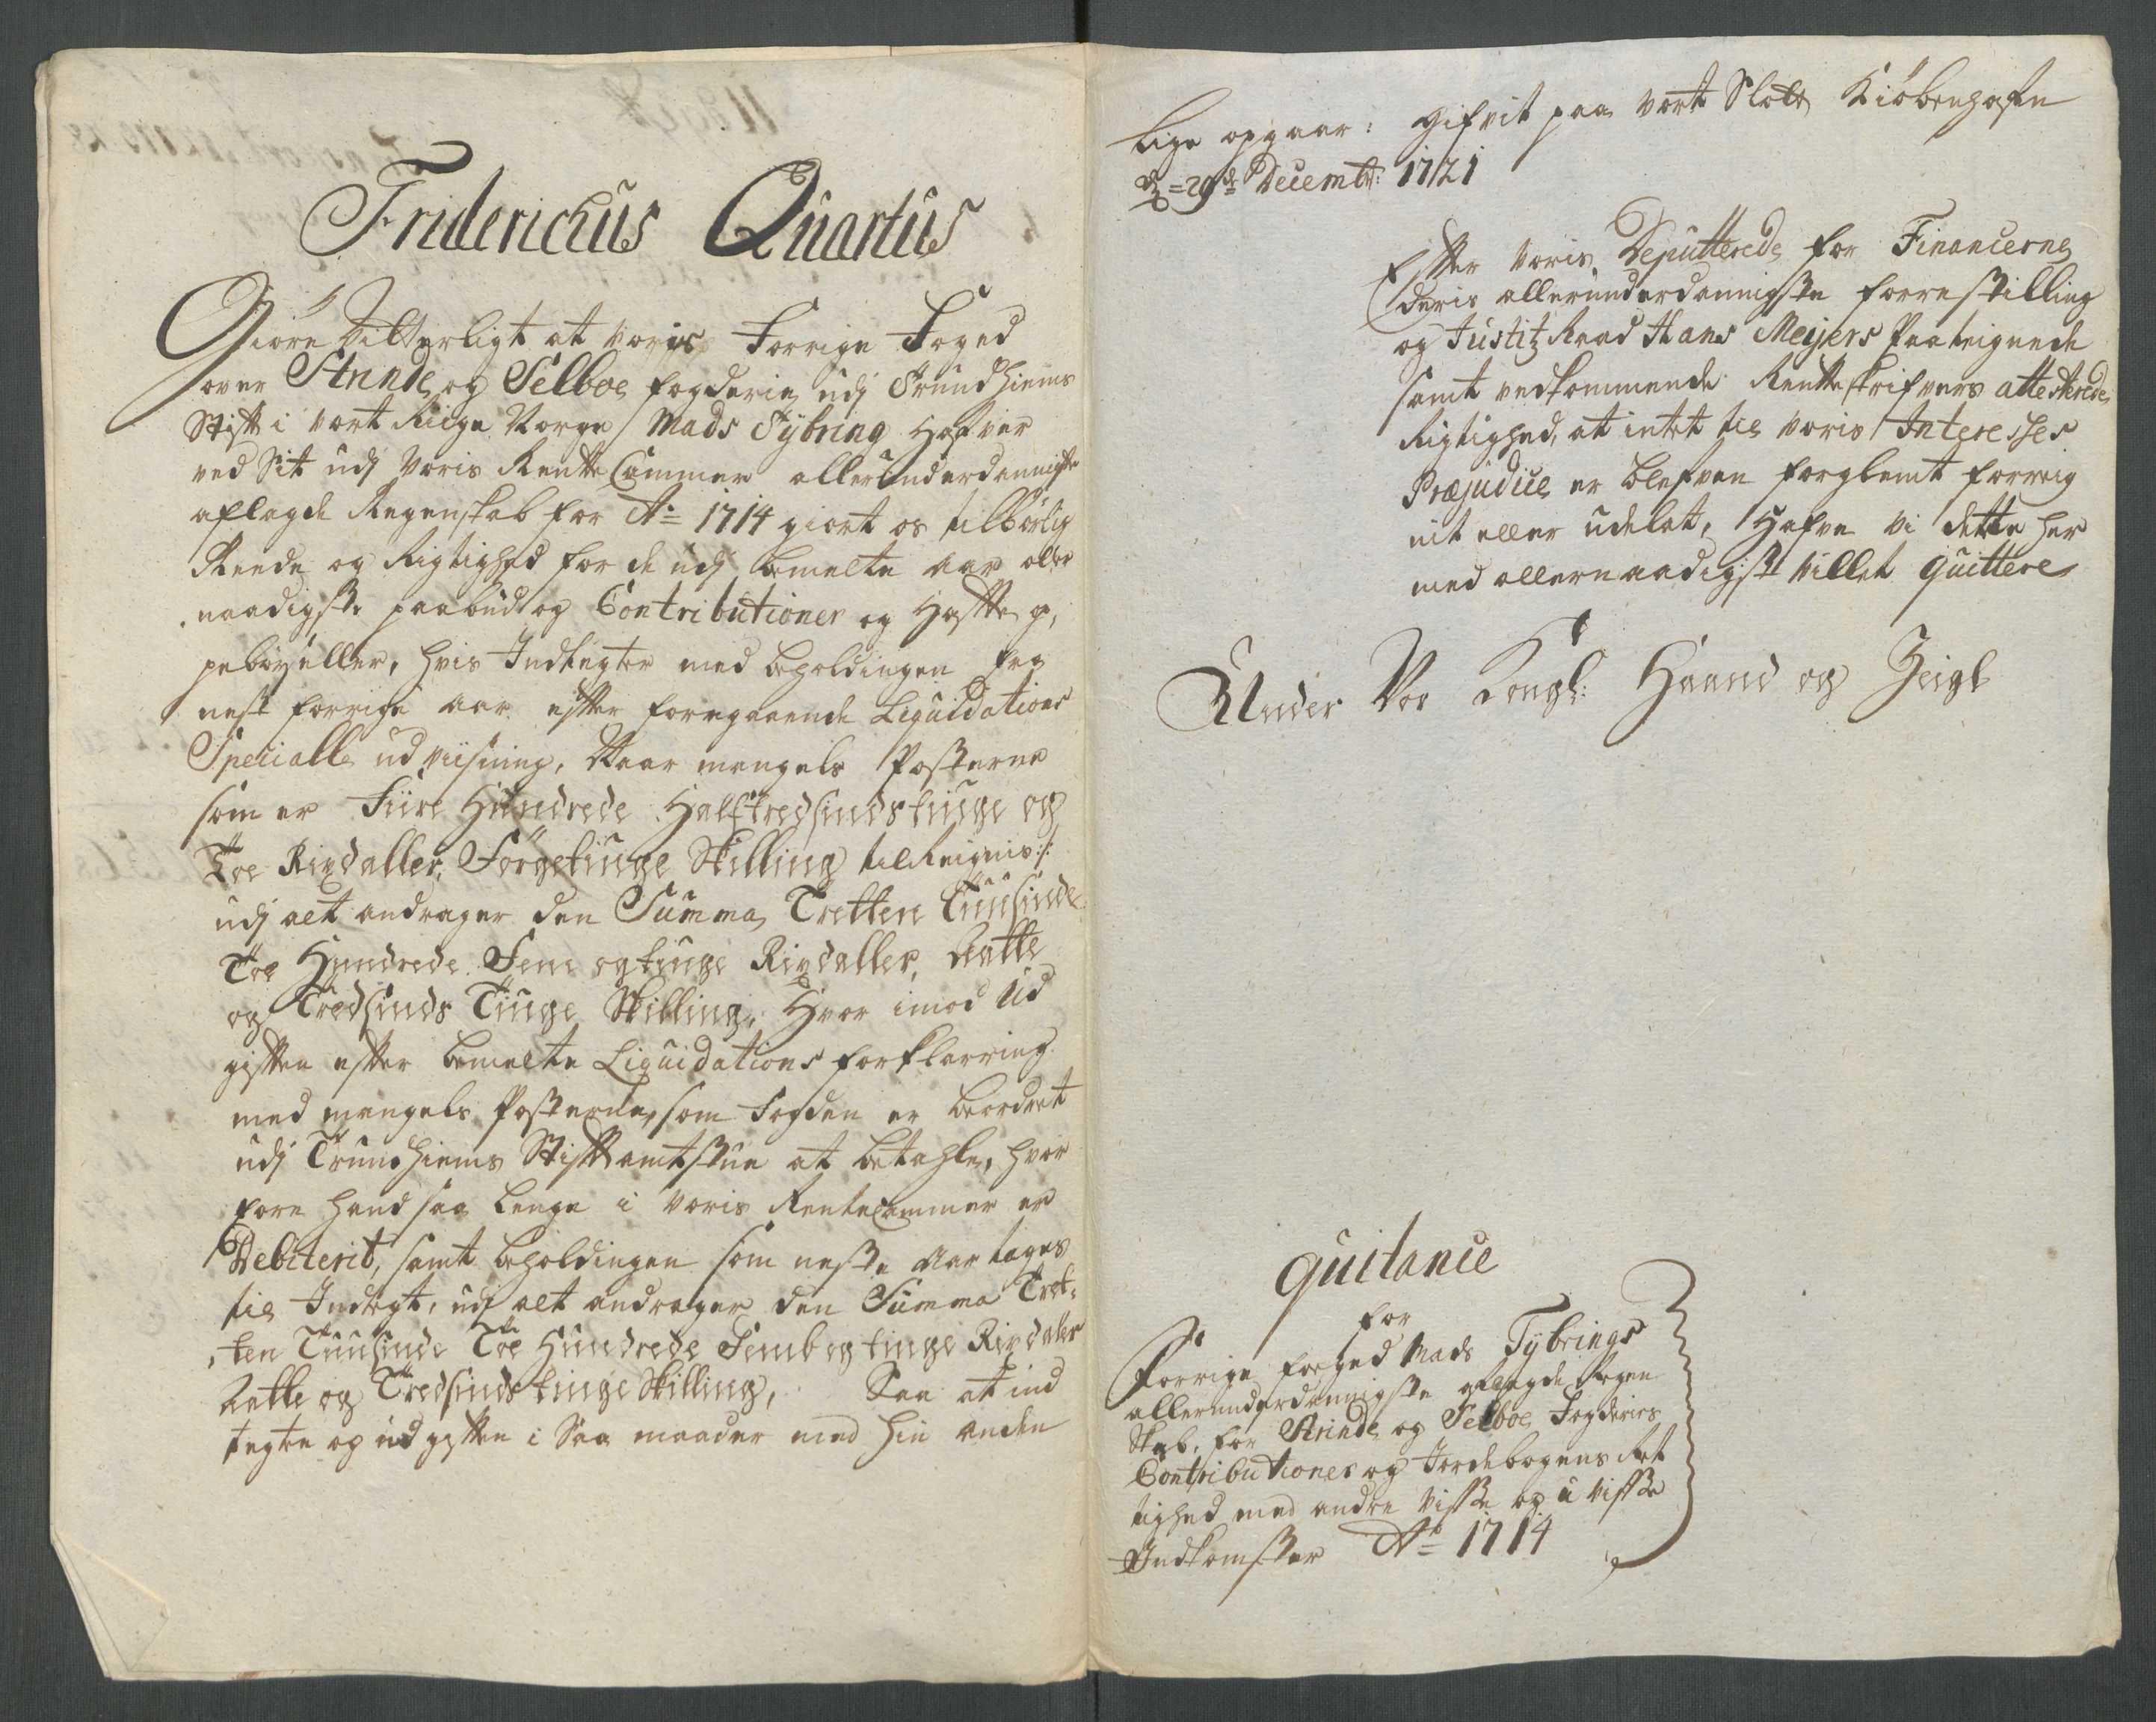 Fridericus Quartus
Giöre Vitterligt at voris Forrige Foged
over Strinde og Selboe fogderie udj Trundhiems
Stift i vort Riige Norge Mads Tybring Hafver
ved Sit udj Voris RentteCammer allerunderdannigste
aflagde Regenskab for Ao 1714 giort os tilbörlig
Reede og Rigtighed for de udj bemelte Aar aller
naadigste paabudog Contributioner og Hafte op,
pebörseller, hvis Indtegter med beholdingen fra
nest forrige aar efter foregaaende Liquidations
Specialle udviisning, Maar mangels Posterne
som er Fiire Hundrede Halftredsindstiuge og
Toe Rixdaller, Förgetiuge Skilling tilReignis:/:
udj alt andrager den Summa Tretten Tuusinde
Toe Hundrede Fem ogtiuge Rixdaller, Aatte
og Tredsinds Tiuge Skilling, Hvor imod Ud
giften efter bemelte Liquidations forklarring
med mangels Posterne, som Fogden er beordret
udj Trundhiems Stiftamtstue at betahle, hvor
fore hand saa lenge i voris Rentecammer er
Debiterit, samt beholdingen som neste Aar tages
til Indtegt, udj alt andrager den Summa Tret,
,ten Tuusinde Toe Hundrede Femb og tiuge Rixdaler
Aatte og Tredsindstiuge Skilling, Saa at ind
tegten og udgiften i Saa maader med hin anden
lige opgaar: Gifvit paa vort Slott Kiöbenhafn
d: 29de Decembr: 1721
Efter voris Deputterede for Financerne
deris allerunderdannigste forrestilling
og JustitzRaad Hans Meÿers Paateignede
samt vedkommende Rentteskrifvers attesterede
Rigtighed, at intet til voris Interesses
Præjudice er blefven forglemt forreig
nit eller udelat, Hafve Vi dette her
med allernaadigst Villet quittere
Under Vor Kongl: Haand og Zeigl
Quitance
for
Forrige foeged Mads Tÿbrings
allerunderdannigste aflagde Regen
Skab, for Strinde og Selboe Fogderies
Contributioner og Jordebogens Ret
tighed med andre Visse og u Visse
Indkomster Ao 1714